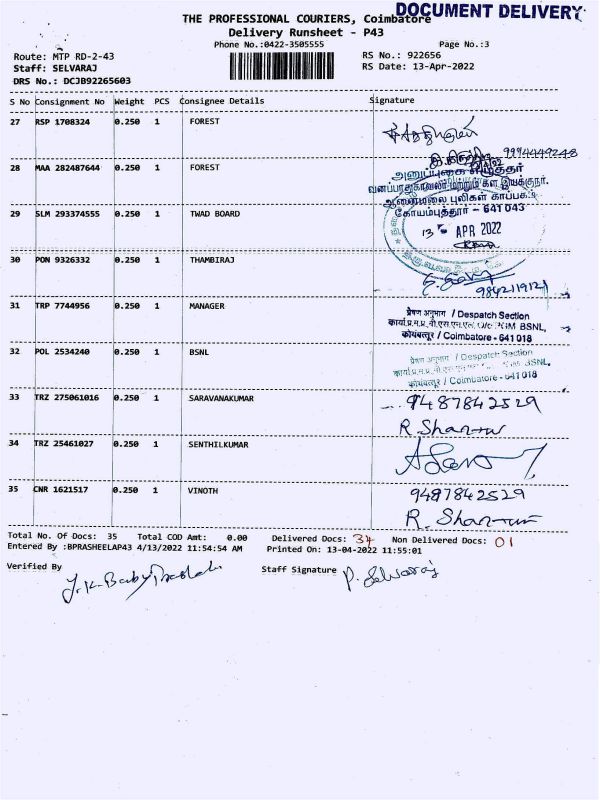 DOCUMENT DELIVERY
THE PROFESSIONAL COURIERS, Coimbatore
Delivery Runsheet - P43
Phone No.:0422-3505555
Page No.:3
Route: MTP RD-2-43
RS No.: 922656
Staff: SELVARAJ
RS Date: 13-Apr-2022
DRS No.: DCJB92265603
S No Consignment No Weight PCS Consignee Details Signature
27 RSP 1708324 0.250 1 FOREST
9994449248
28 MAA 282487644 0.250 1 FOREST
அனுப்புகை எழுத்தர்
வனப்பாதுகாவலர் மற்றும் கள இயக்குநர்.
ஆனைமலை புலிகள் காப்பகம்
கோயம்புத்தூர் - 641 043
29 SLM 293374555 0.250 1 TWAD BOARD
13 APR 2022
30 PON 9326332 0.250 1 THAMBIRAJ
9842119121
31 TRP 7744956 0.250 1 MANAGER
प्रेषण अनुभाग / Despatch Section
BSNL,
कोयंबत्तूर / Coimbatore - 641 018
32 POL 2534240 0.250 1 BSNL
प्रेषण अनुभाग / Despatch Section
BSNL,
कोयंबत्तूर / Coimbatore - 641 018
33 TRZ 275061016 0.250 1 SARAVANAKUMAR
9487842529
34 TRZ 25461027 0.250 1 SENTHILKUMAR
35 CNR 1621517 0.250 1 VINOTH
9487842529
Total No. Of Docs: 35 Total COD Amt: 0.00 Delivered Docs: 34 Non Delivered Docs: 01
Entered By :BPRASHEELAP43 4/13/2022 11:54:54 AM Printed On: 13-04-2022 11:55:01
Verified By
Staff Signature P. Selvaraj